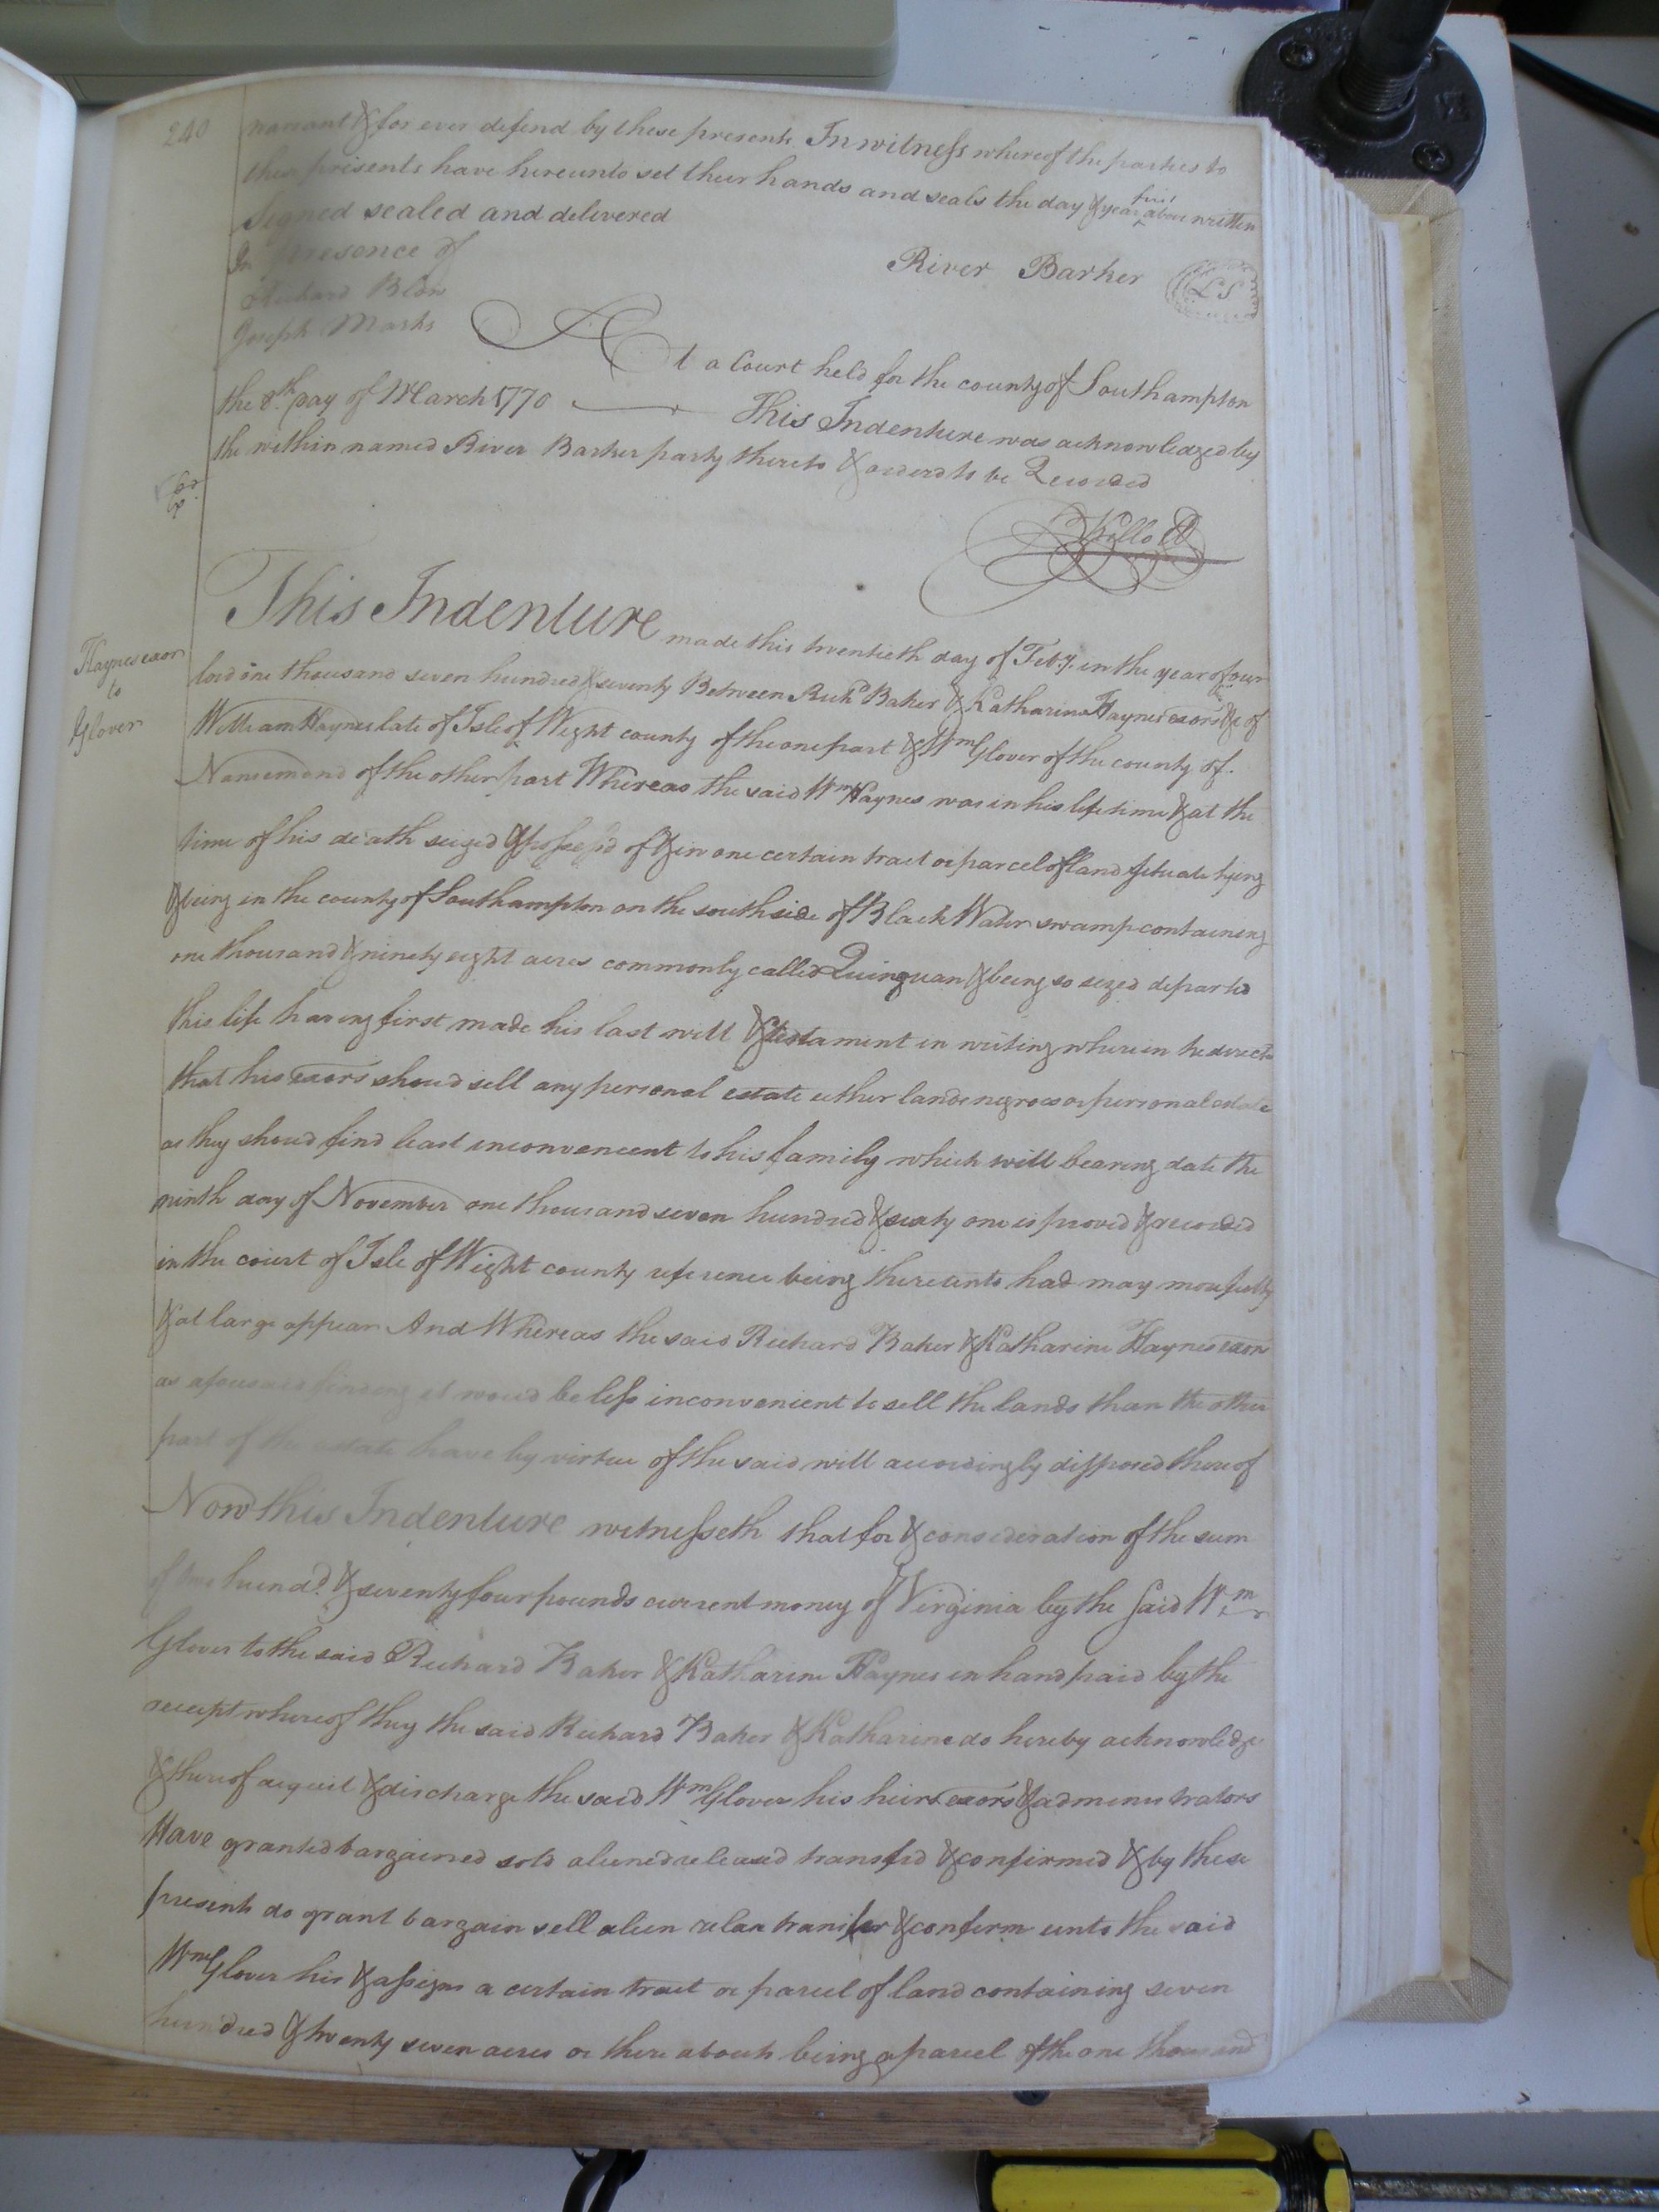 240
warrant & for ever defend by these presents. In witness whereof the parties to
these presents have hereunto set their hands and seals the day & year first above written
Signed sealed and delivered
In presence of
River Barker LS
Richard Blow
Joseph Marks
At a Court held for the county of Southampton
the 8th. day of March 1770 This Indenture was acknowledged by
the within named River Barker party thereto & orderd to be Recorded
This Indenture made this twentieth day of Feby. in the year of our
Haynes exors
to
Glover
lord one thousand seven hundred & seventy Between Richd Baker & Katharine Haynes exors &c of
William Haynes late of Isle of Wight county of the one part & Wm Glover of the county of
Nansemond of the other part Whereas the said Wm Haynes was in his life time & at the
time of his death seized & possess'd of & in one certain tract or parcel of land situate lying
& being in the county of Southampton on the south side of Black Water swamp containing
one thousand & ninety eight acres commonly called Quinquan & being so seized departed
this life having first made his last will & testament in writing wherein he directs
that his exors shoud sell any personal estate either lands negroes or personal estate
as they shoud find least inconvenient to his family which will bearing date the
ninth day of November one thousand seven hundred & sixty one is proved & recorded
in the court of Isle of Wight county reference being thereunto had may more fully
& at large appear And Whereas the said Richard Baker & Katharine Haynes exors
as aforesaid finding it woud be less inconvenient to sell the lands than the other
part of the estate have by virtue of the said will accordingly disposed thereof
Now this Indenture witnesseth that for & consideration of the sum
of two hundd. & seventy four pounds current money of Virginia by the said Wm
Glover to the said Richard Baker & Katharine Haynes in hand paid by the
receipt whereof they the said Richard Baker & Katharine do hereby acknowledge
& thereof acquit & discharge the said Wm Glover his heirs exors & administrators
Have granted bargained sold aliened released transferd & confirmed & by these
presents do grant bargain sell alien releas transfer & confirm unto the said
Wm Glover his & assigns a certain tract or parcel of land containing seven
hundred & twenty seven acres or there abouts being a parcel of the one thousand